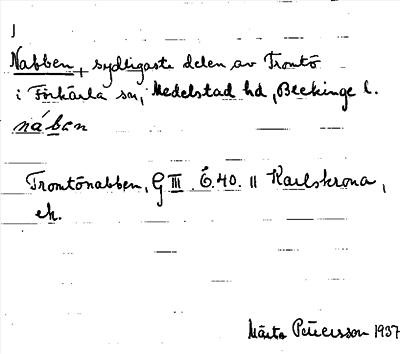 1
Nabben, sydligaste delen av Tromtö
i Förkärla sn, Medelstad hd, Blekinge l.
nában
Tromtönabben, G III. Ö.40. 11 Karlskrona,
ek.
Märta Petersson 1937